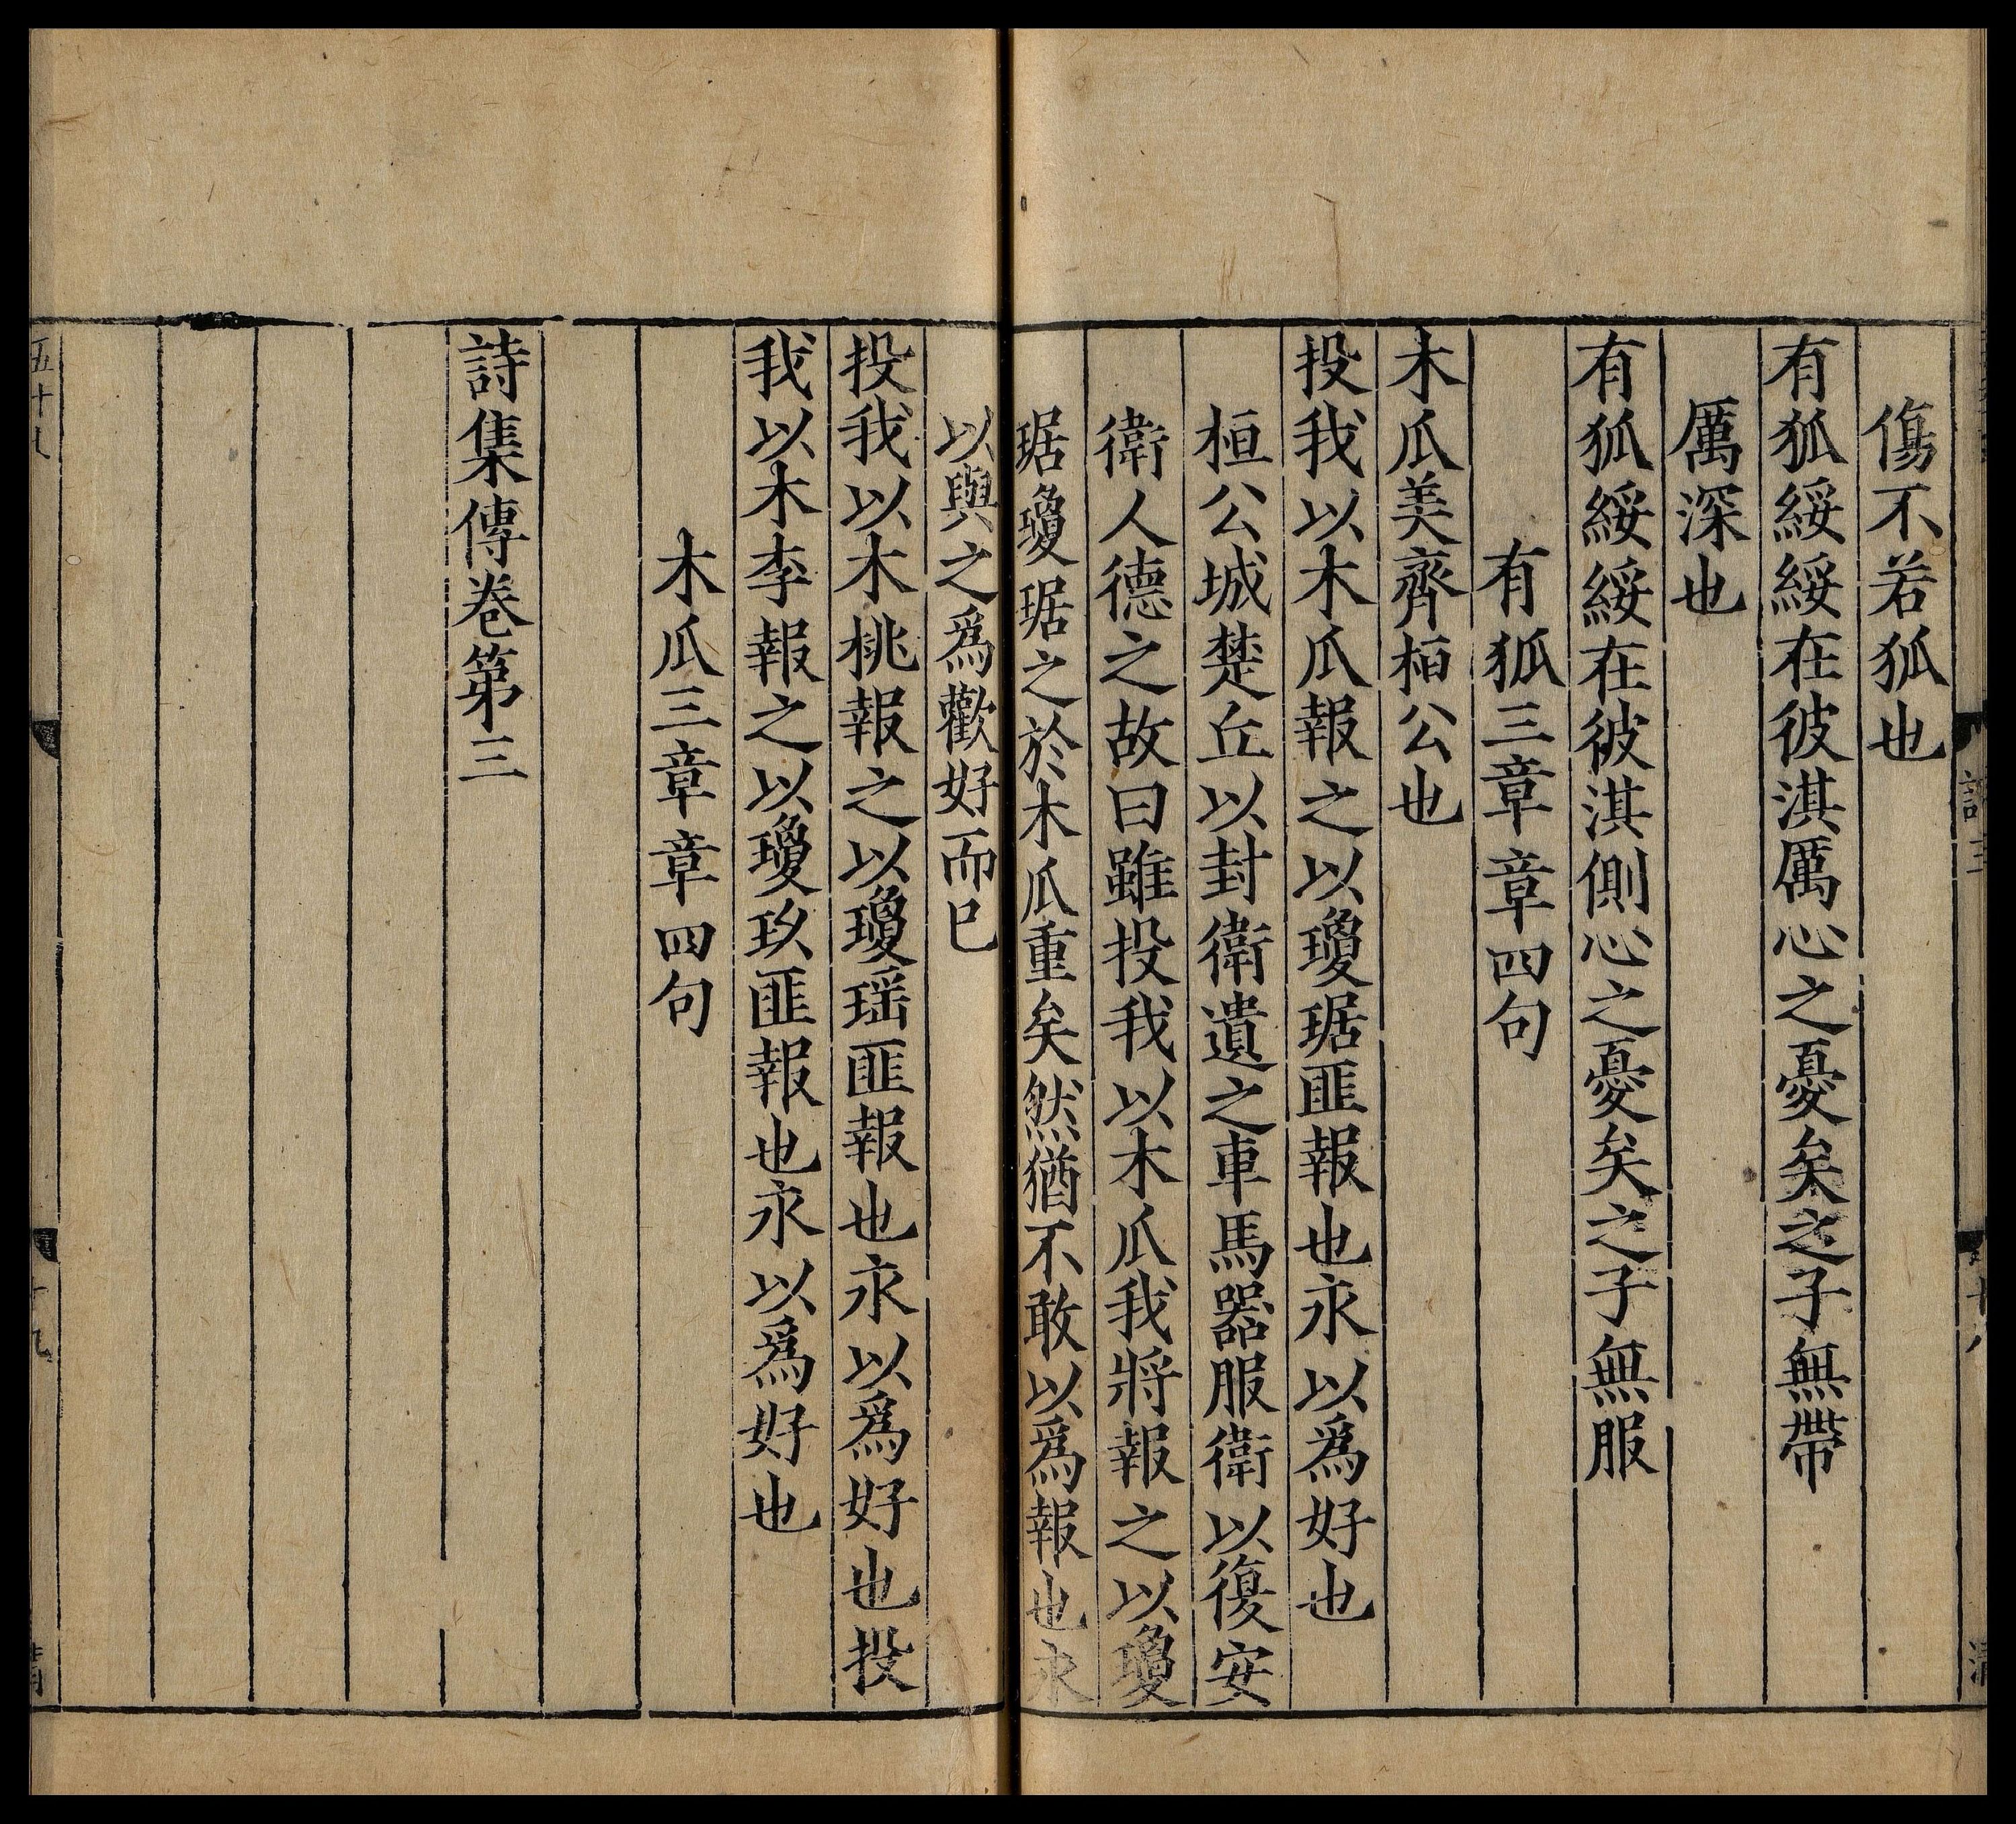 傷不若狐也
有狐綏綏在彼淇厲心之憂矣之子無帶
厲深也
有狐綏綏在彼淇側心之憂矣之子無服
有狐三章章四句
木瓜美齊桓公也
投我以木瓜報之以瓊琚匪報也永以爲好也
桓公城楚丘以封衛遺之車馬器服衛以復安
衛人德之故曰雖投我以木瓜我將報之以瓊
琚瓊琚之於木瓜重矣然猶不敢以爲報也永
以與之爲歡好而已
投我以木桃報之以瓊瑶匪報也永以爲好也投
我以木李報之以瓊玖匪報也永以爲好也
木瓜三章章四句
詩集傳卷第三